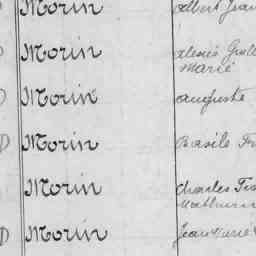 Morin albert Jean
Morin alexis Guill
Marie
Morin auguste
Morin Basile Fr
Morin Charles Fis
Mathurin
Morin Jean Marie